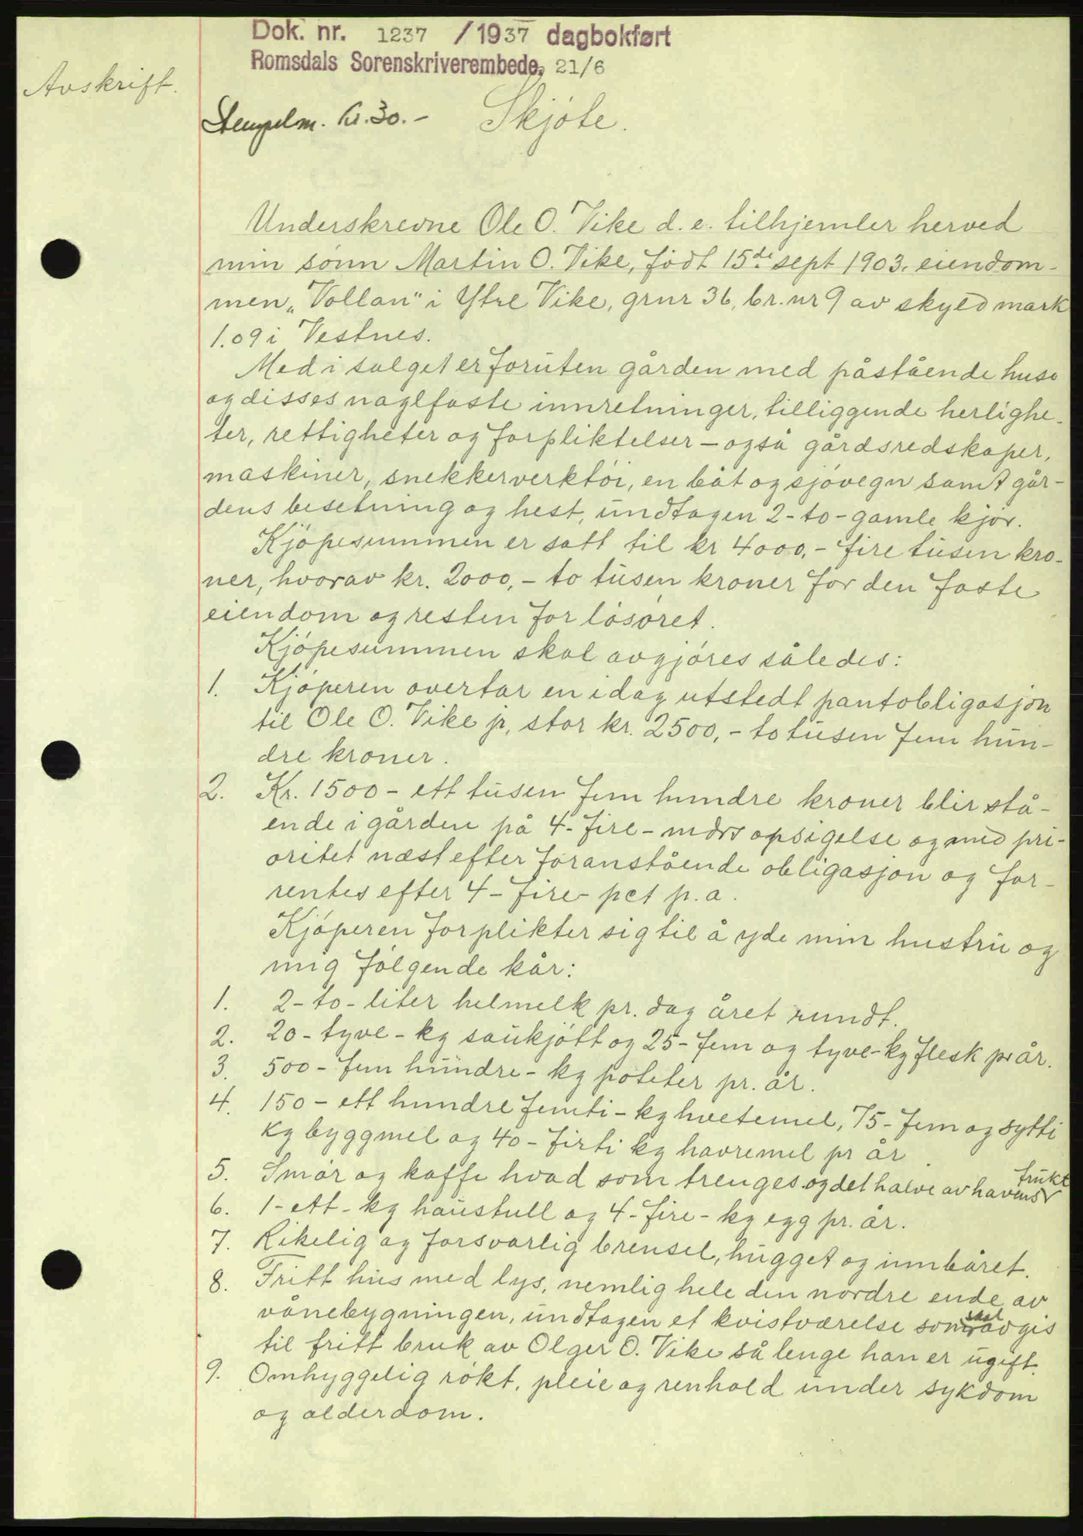 Dok. nr. 1237 /1937 dagbokført
Romsdals Sorenskriverembede, 21/6
Avskrift.
Stempelm. kr. 30.-
Skjöte.
Underskrevne Ole O. Vike d. e. tilhjemler herved
min sönn Martin O. Vike, födt 15de sept 1903. eiendom-
men „Vollan" i Ytre Vike, grnr 36, br. nr 9 av skyld mark
1.09 i Vestnes.
Med i salget er foruten gården med påstående huse
og disses naglfaste innretninger, tilliggende herlighe-
ter, rettigheter og forpliktelser – også gårdsredskaper,
maskiner, snekkerverktöi, en båt og sjövegn samt går-
dens besetning og hest, undtagen 2-to-gamle kjör.
Kjöpesummen er satt til kr 4000,- fire tusen kro-
ner, hvorav kr. 2000,- to tusen kroner for den faste
eiendom og resten for lösöret.
Kjöpesummen skal avgjöres således:
1. Kjöperen overtar en idag utstedt pantobligasjon
til Ole O. Vike jr, stor kr. 2500,- to tusen fem hun-
dre kroner.
2. Kr. 1500 - ett tusen fem hundre kroner blir stå-
ende i gården på 4- fire - mdrs opsigelse og med pri-
oritet næst efter foranstående obligasjon og for-
rentes efter 4 - fire - pct p. a.
Kjöperen forplikter sig til å yde min hustru og
mig fölgende kår:
1. 2 - to - liter helmelk pr. dag året rundt.
2. 20 - tyve - kg saukjött og 25 - fem og tyve - kg flesk pr år.
3. 500 - fem hundre - kg poteter pr. år.
4. 150 - ett hundre femti - kg hvetemel, 75 - fem og sytti
kg byggmel og 40 - firti kg havremel pr år.
5. Smör og kaffe hvad som trenges og det halve av havens frukt
6. 1 - ett - kg haustull og 4 - fire - kg egg pr. år.
7. Rikelig og forsvarlig brensel, hugget og innbåret.
8. Fritt hus med lys, nemlig hele den nordre ende av
vånebygningen, undtagen et kvistværelse som skal avgis
til fritt bruk av Olger O. Vike så lenge han er ugift.
9. Omhyggelig rökt, pleie og renhold under sykdom
og alderdom.